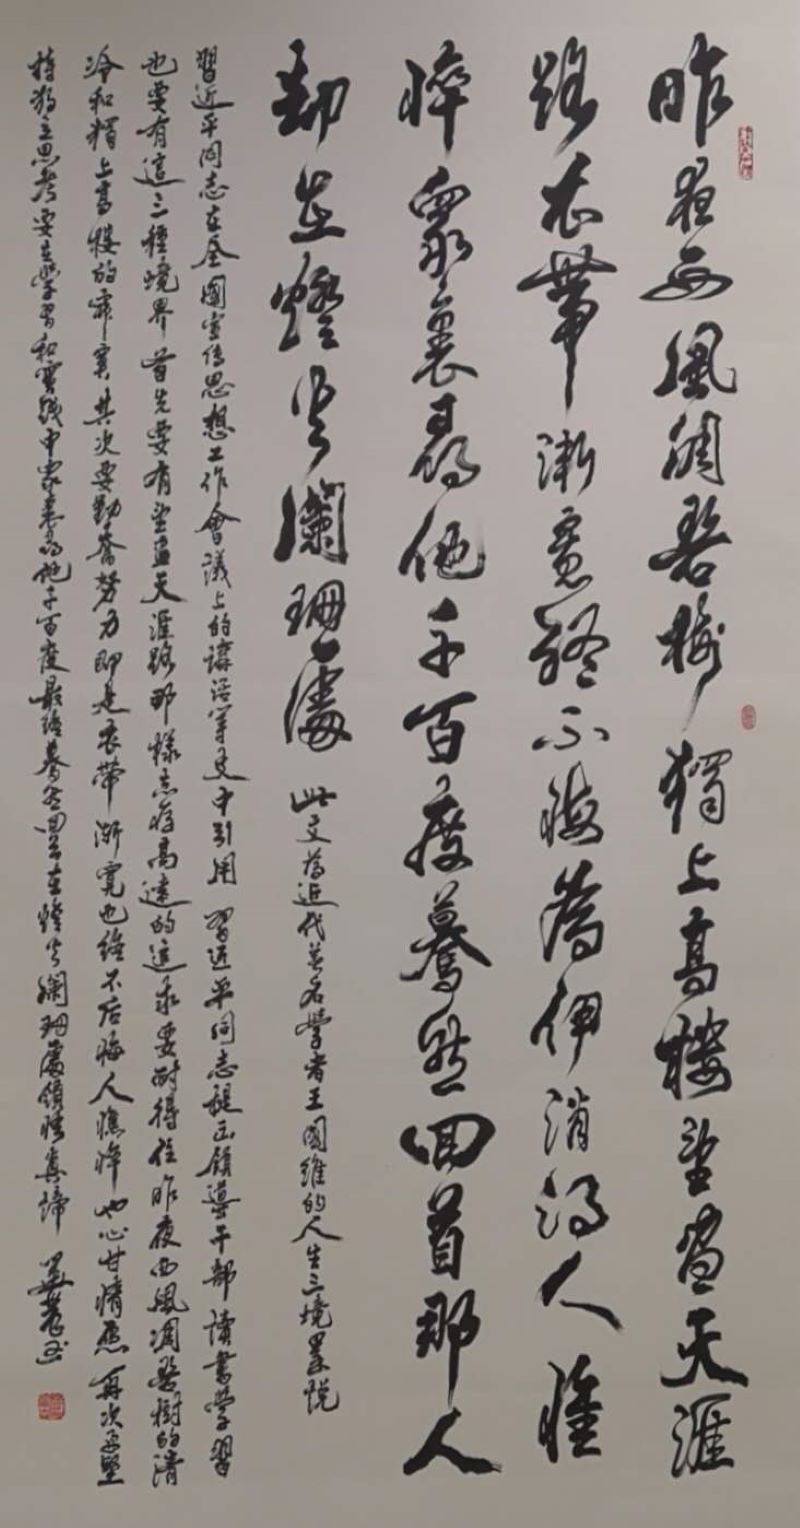 昨夜西風凋碧樹獨上高樓望盡天涯
路衣帶漸寬終不悔為伊消得人憔
悴眾裏尋他千百度驀然回首那人
却在燈火闌珊處
此文為近代著名學者王國維的人生三境界說
習近平同志在全國宣传思想工作會議上的講话等文中引用 習近平同志提出領導干部讀書學習
也要有這三種境界首先要有望盡天涯路那樣志存高遠的追求要耐得住昨夜西風凋碧樹的清
冷和獨上高樓的寂寞其次要勤奮努力即是衣帶漸寬也终不后悔人憔悴也心甘情愿再次要堅
持獨立思考要在學習和實踐中眾裏尋他千百度最终驀然回首在燈火闌珊處領悟真諦